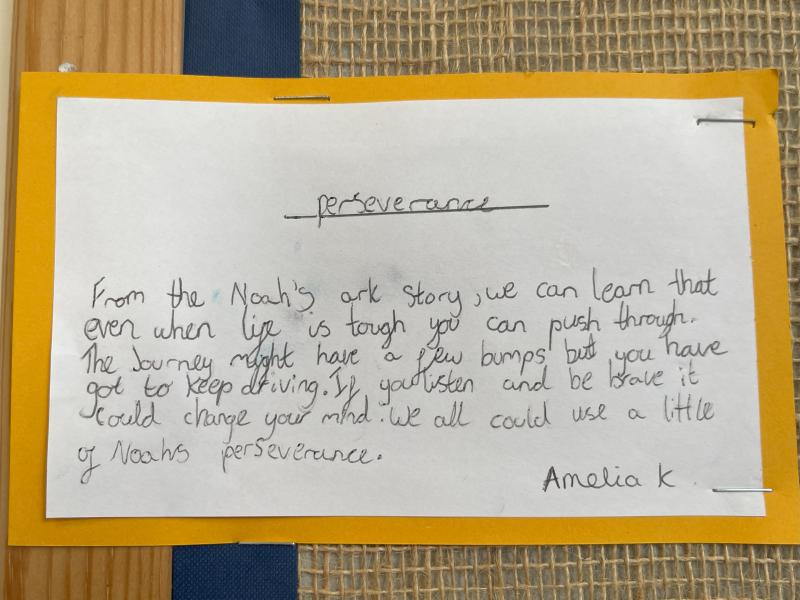 perseverance
From the Noah's ark story, we can learn that
even when life is tough you can push through.
The Journey might have a few bumps but you have
got to keep driving. If you listen and be brave it
could change your mind. We all could use a little
of Noahs perseverance.
Amelia K